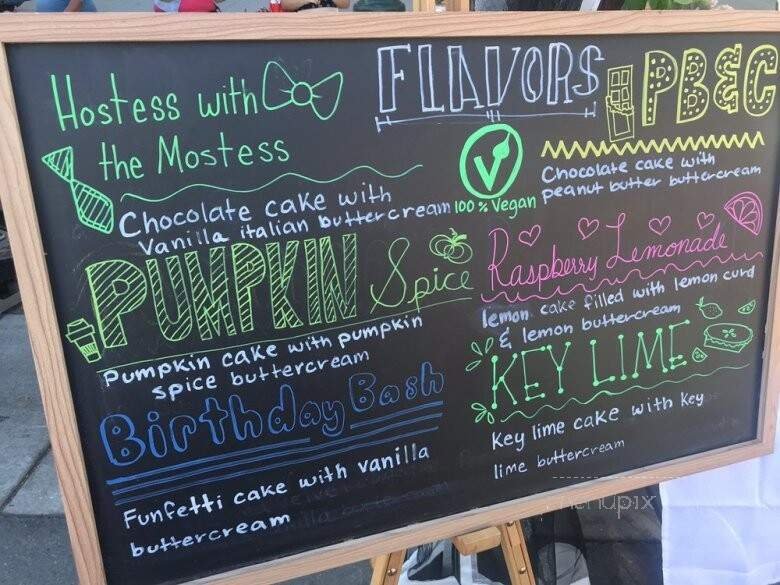 FLAVORS
Hostess with
the Mostess
Chocolate cake with
Vanilla italian buttercream
100% Vegan
PB&C
Chocolate cake with
peanut butter buttercream
PUMPKIN Spice
Pumpkin cake with pumpkin
spice buttercream
Raspberry Lemonade
lemon cake filled with lemon curd
& lemon buttercream
Birthday Bash
Funfetti cake with vanilla
buttercream
KEY LIME
Key lime cake with key
lime buttercream
menupix